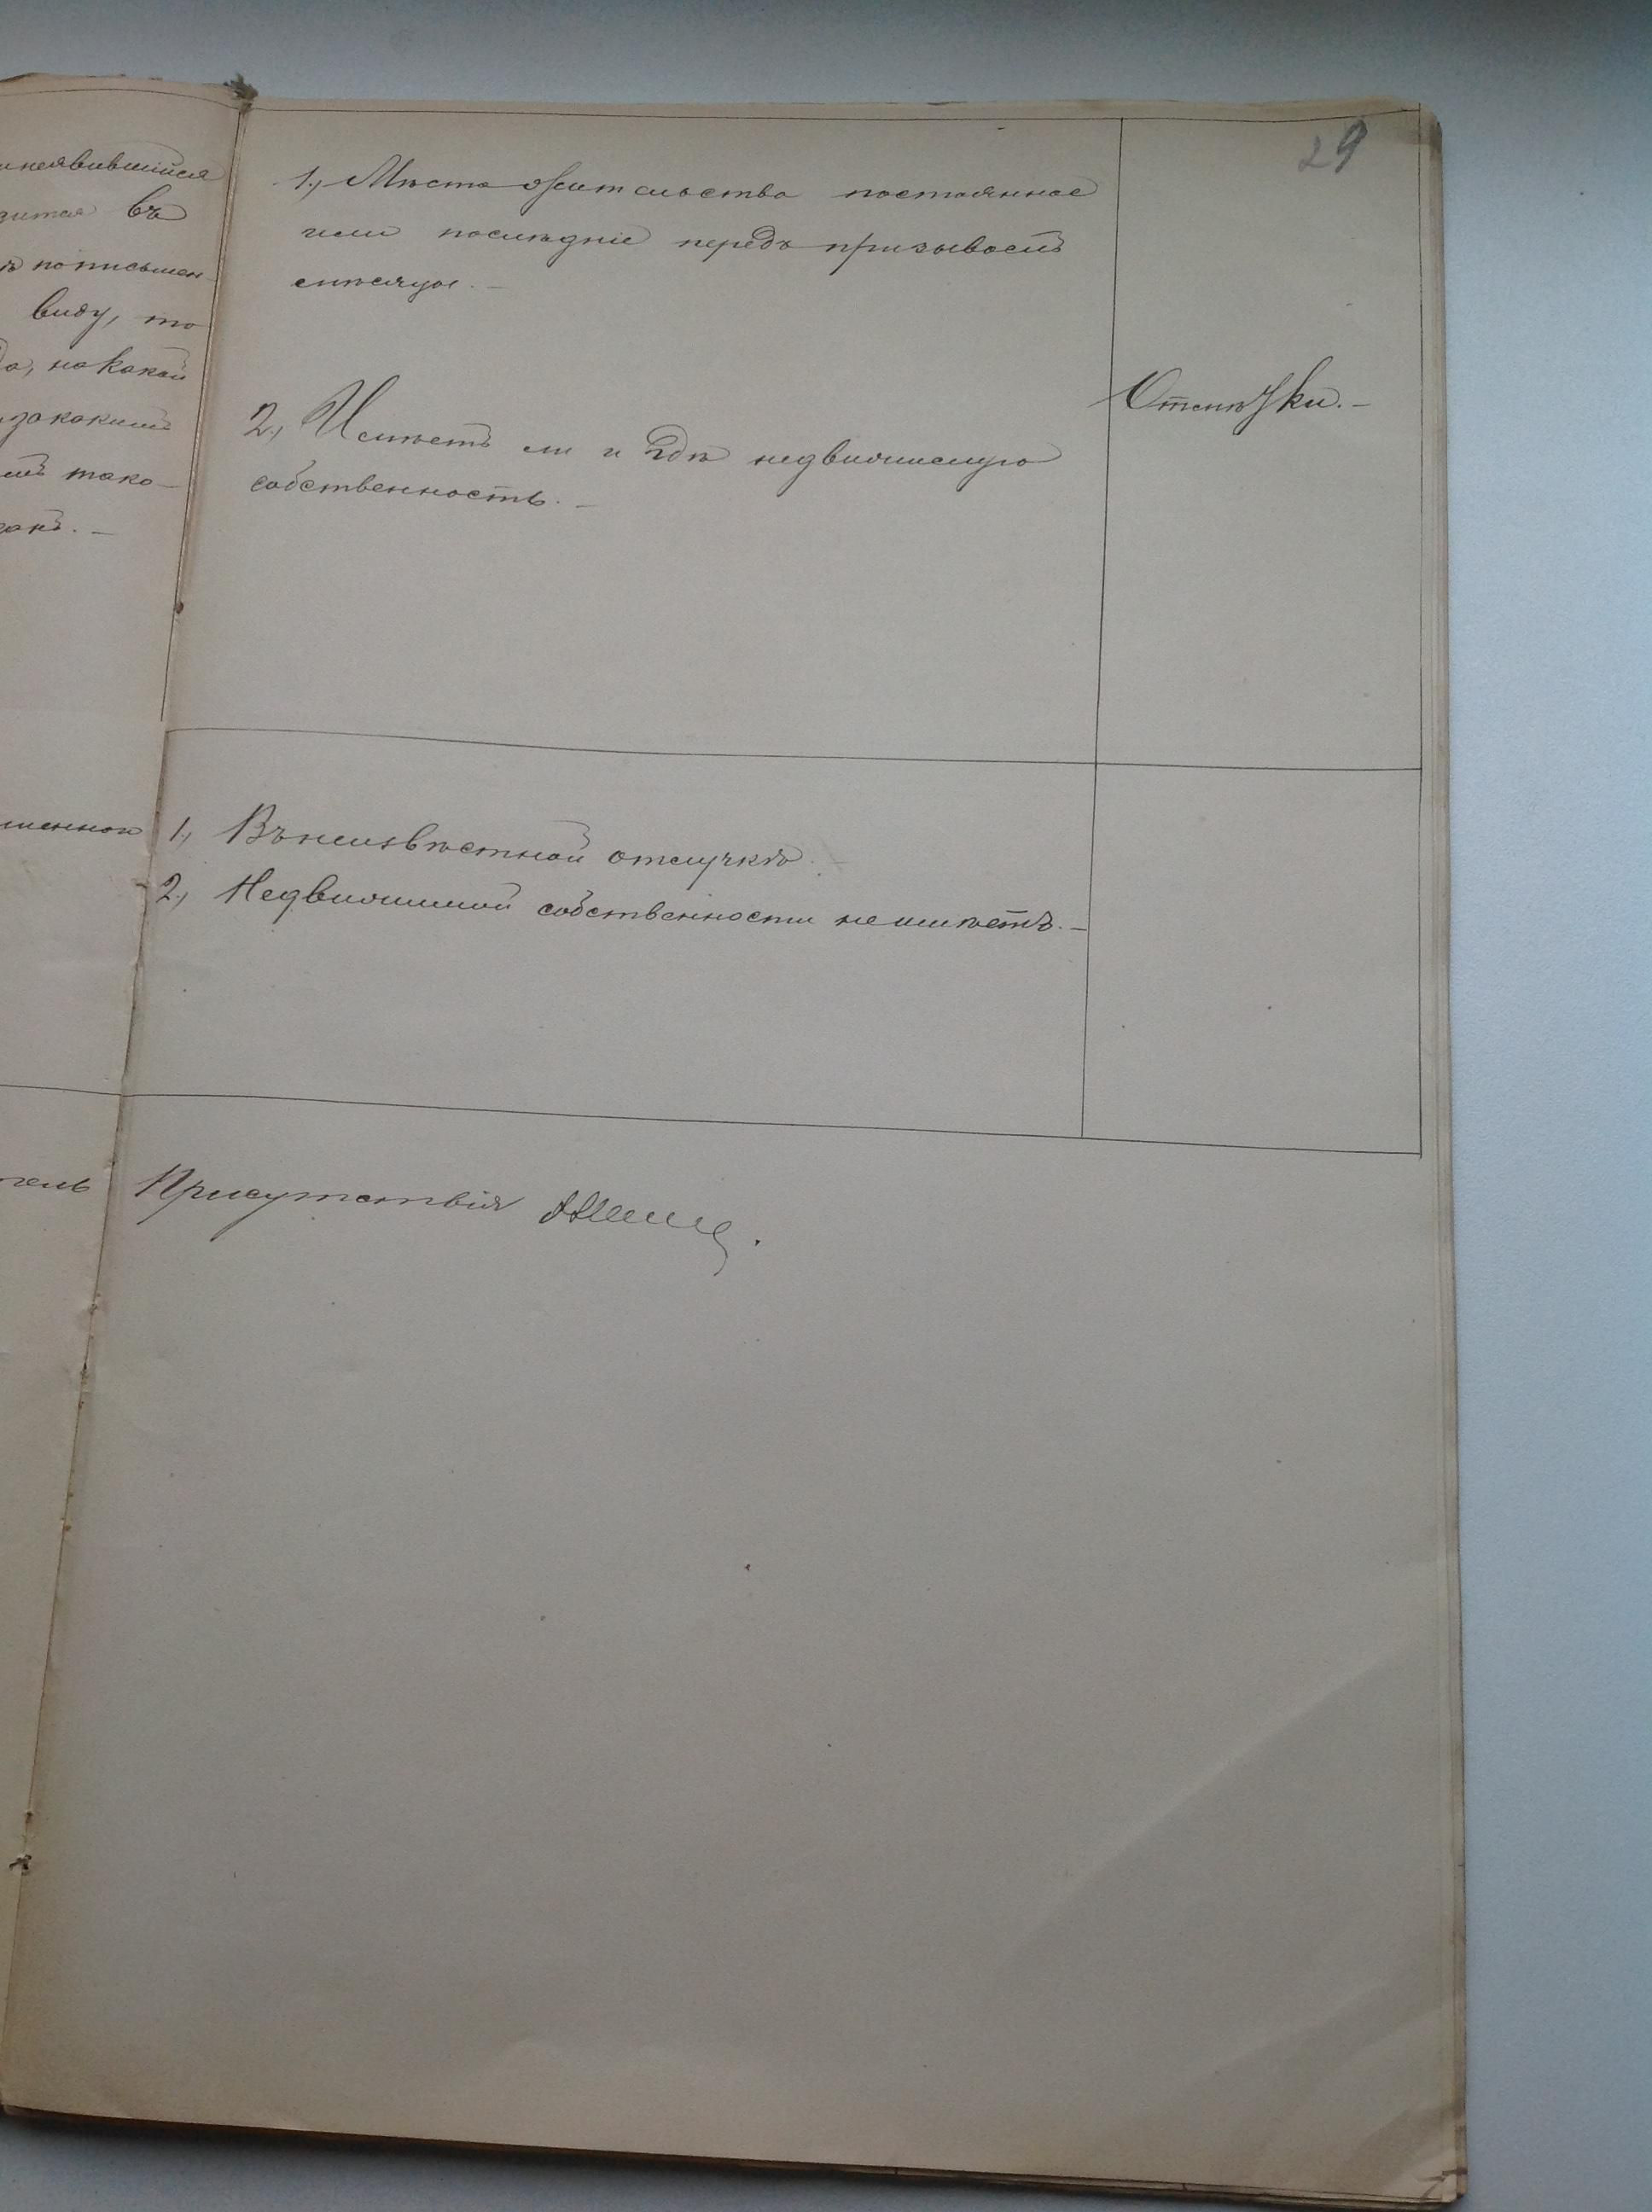 29
неявившійся
въ
по письмен-
виду, то
на какой
за какимъ
тако-
1., Место жительства постоянное
или последніе передъ призывомъ
2., Имѣетъ ли и гдѣ недвижимую
собственность. –
Отмѣтки. –
1., Въ неизвѣстной отлучкѣ.
2., Недвижимой собственности не имѣетъ. –
Присутствія